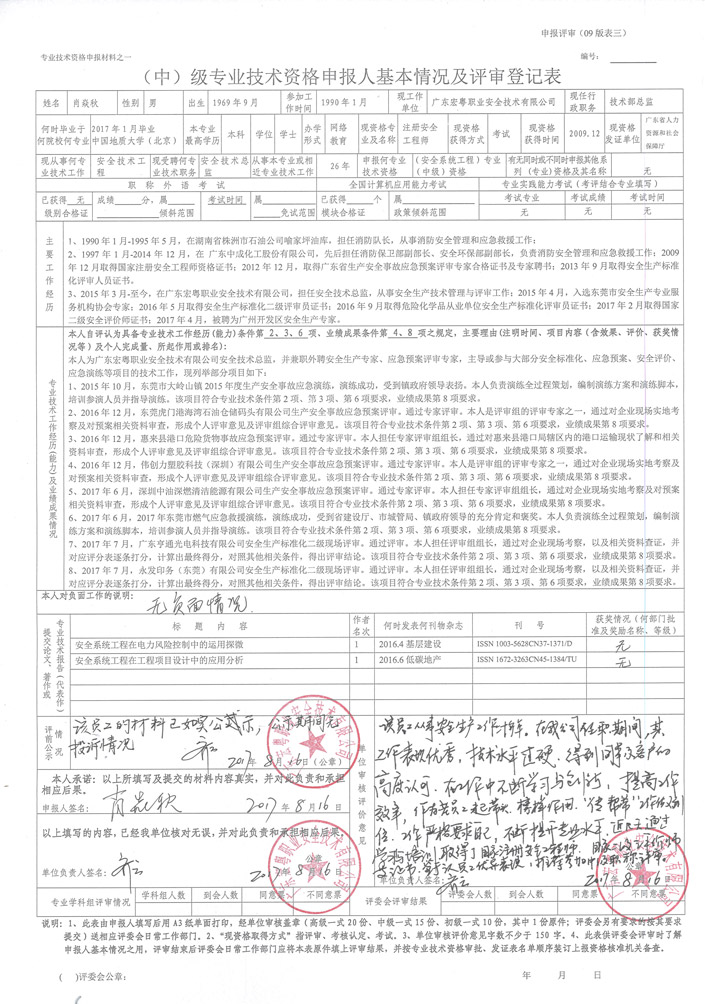 申报评审（09版表三）
专业技术资格申报材料之一
编号：
（中）级专业技术资格申报人基本情况及评审登记表
姓名 肖焱秋 性别 男 出生 1969年9月 参加工作时间 1990年1月 现工作单位 广东宏粤职业安全技术有限公司 现任行政职务 技术部总监
何时毕业于何院校何专业 2017年1月毕业 中国地质大学（北京） 本专业最高学历 本科 学位 学士 办学形式 网络教育 现资格专业及名称 注册安全工程师 现资格获得方式 考试 现资格获得时间 2009.12 现资格发证单位 广东省人力资源和社会保障厅
现从事何专业技术工作 安全技术工程 现受聘何专业技术职务 安全技术总监 从事本专业或相近专业技术工作 26年 申报何专业技术资格 （安全系统工程）专业（中级）资格 有无同时或不同时申报其他系列（专业）资格及其名称 无
职称外语考试 全国计算机应用能力考试 专业实践能力考试（考评结合专业填写）
已获得 无 成绩 分，属 考试时间 属 已获得 个 属 考试专业 考试成绩 考试时间
级别合格证 倾斜范围 免试范围 模块合格证 政策倾斜范围 无 无 无
主要工作经历
1、1990年1月-1995年5月，在湖南省株洲市石油公司喻家坪油库，担任消防队长，从事消防安全管理和应急救援工作；
2、1997年1月-2014年12月，在 广东中成化工股份有限公司，先后担任消防保卫部副部长、安全环保部副部长，负责消防安全管理和应急救援工作；2009
年12月取得国家注册安全工程师资格证书；2012年12月，取得广东省生产安全事故应急预案评审专家合格证书及专家聘书；2013年9月取得安全生产标准
化评审人员证书。
3、2015年3月-至今，在广东宏粤职业安全技术有限公司，担任安全技术总监，从事安全生产技术管理与评审工作；2015年4月，入选东莞市安全生产专业服
务机构协会专家；2016年5月取得安全生产标准化二级评审员证书；2016年9月取得危险化学品从业单位安全生产标准化评审员证书；2017年2月取得国家
二级安全评价师证书；2017年4月，被聘为广州开发区安全生产专家。
专业技术工作经历(能力)及业绩成果情况
本人自评认为具备专业技术工作经历(能力)条件第 2、3、6 项、业绩成果条件第 4、8 项之规定，主要理由(注明时间、项目内容（含效果、评价、获奖情
况等）及个人完成量、所起作用或排名)：
本人为广东宏粤职业安全技术有限公司安全技术总监，并兼职外聘安全生产专家、应急预案评审专家，主导或参与大部分安全标准化、应急预案、安全评价、
应急演练等项目的技术工作，现列举部分项目如下：
1、2015年10月，东莞市大岭山镇2015年度生产安全事故应急演练，演练成功，受到镇政府领导表扬。本人负责演练全过程策划，编制演练方案和演练脚本，
培训参演人员并指导演练。该项目符合专业技术条件第2项、第3项、第6项要求，业绩成果第8项要求。
2、2016年12月，东莞虎门港海湾石油仓储码头有限公司生产安全事故应急预案评审。通过专家评审。本人是评审组的评审专家之一，通过对企业现场实地考
察及对预案相关资料审查，形成个人评审意见及评审组综合评审意见。该项目符合专业技术条件第2项、第3项、第6项要求，业绩成果第8项要求。
3、2016年12月，惠来县港口危险货物事故应急预案评审。通过专家评审。本人担任专家评审组组长，通过对惠来县港口局辖区内的港口运输现状了解和相关
资料审查，形成个人评审意见及评审组综合评审意见。该项目符合专业技术条件第2项、第3项、第6项要求，业绩成果第8项要求。
4、2016年12月，伟创力塑胶科技（深圳）有限公司生产安全事故应急预案评审。通过专家评审。本人是评审组的评审专家之一，通过对企业现场实地考察及
对预案相关资料审查，形成个人评审意见及评审组综合评审意见。该项目符合专业技术条件第2项、第3项、第6项要求，业绩成果第8项要求。
5、2017年6月，深圳中油深燃清洁能源有限公司生产安全事故应急预案评审。通过专家评审。本人担任专家评审组组长，通过对企业现场实地考察及对预案相
关资料审查，形成个人评审意见及评审组综合评审意见。该项目符合专业技术条件第2项、第3项、第6项要求，业绩成果第8项要求。
6、2017年6月，2017年东莞市燃气应急救援演练，演练成功，受到省建设厅、市城管局、镇政府领导的充分肯定和褒奖。本人负责演练全过程策划，编制演
练方案和演练脚本，培训参演人员并指导演练。该项目符合专业技术条件第2项、第3项、第6项要求，业绩成果第8项要求。
7、2017年7月，广东亨通光电科技有限公司安全生产标准化二级现场评审。通过评审。本人担任评审组组长，通过对企业现场考察，以及相关资料查证，并
对应评分表逐条打分，计算出最终得分，对照其他相关条件，得出评审结论。该项目符合专业技术条件第2项、第3项、第6项要求，业绩成果第8项要求。
8、2017年7月，永发印务（东莞）有限公司安全生产标准化二级现场评审。通过评审。本人担任评审组组长，通过对企业现场考察，以及相关资料查证，并
对应评分表逐条打分，计算出最终得分，对照其他相关条件，得出评审结论。该项目符合专业技术条件第2项、第3项、第6项要求，业绩成果第8项要求。
本人对负面工作的说明：
无负面情况
提交论文、著作或专业技术报告（代表作）
标题内容 作者名次 何时发表何刊物杂志 刊号 获奖情况（何部门批准及奖励名称、等级）
安全系统工程在电力风险控制中的运用探微 1 2016.4 基层建设 ISSN 1003-5628CN37-1371/D 无
安全系统工程在工程项目设计中的应用分析 1 2016.6 低碳地产 ISSN 1672-3263CN45-1384/TU 无
评前公示情况
该员工的材料已如实公示，公示期间无
投诉情况
2017年8月16日（公章）
本人承诺：以上所填写及提交的材料内容真实，并对此负责和承担
相应后果。
申报人签名： 肖焱秋 2017年8月16日
以上填写的内容，已经我单位核对无误，并对此负责和承担相应后果。
公章
单位负责人签名： 2017年8月16日
单位审核评价意见
该员工从事安全生产工作多年。在我公司任职期间，其
工作表现优秀，技术水平过硬，得到同事及客户的
高度认可。在工作中不断学习与创新，提高工作
效率，
公章
单位负责人签名： 2017年8月16日
专业学科组评审情况 学科组人数 到会人数 同意票 不同意票 评委会评审结果 评委会人数 到会人数 同意票 不同意票
说明：1、此表由申报人填写后用A3纸单面打印，经单位审核盖章（高级一式20份、中级一式15份、初级一式10份，其中1份原件；评委会另有要求的按其要求
提交）送相应评委会日常工作部门。2、“现资格取得方式”指评审、考核认定、考试。3、单位审核评价意见字数不少于150字。4、此表供评委会评审时了解
申报人基本情况之用，评审结束后评委会日常工作部门应将本表原件填上评审结果，并按专业技术资格审批、发证表名单顺序装订上报资格核准机关备查。
（ ）评委会公章： 年 月 日